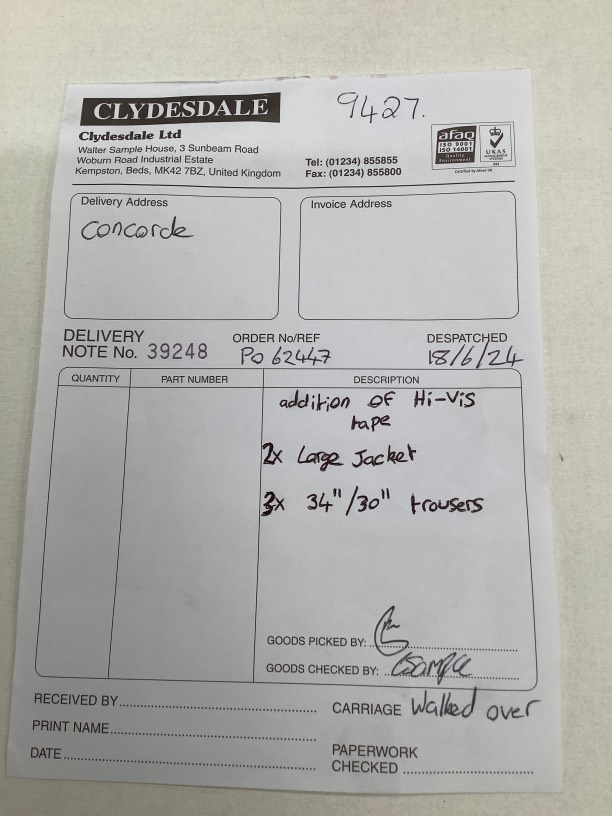 CLYDESDALE
9427.
Clydesdale Ltd
Walter Sample House, 3 Sunbeam Road
Woburn Road Industrial Estate
Kempston, Beds, MK42 7BZ, United Kingdom
Tel: (01234) 855855
Fax: (01234) 855800
afaq
ISO 9001
ISO 14001
Quality
Environment
UKAS
MANAGEMENT
SYSTEMS
Delivery Address
Concorde
Invoice Address
DELIVERY
NOTE No. 39248
ORDER No/REF
PO 62447
DESPATCHED
18/6/24
QUANTITY PART NUMBER DESCRIPTION
addition OF Hi-Vis
tape
2x Large Jacket
3x 34"/30" trousers
GOODS PICKED BY:
GOODS CHECKED BY: GSample
RECEIVED BY
CARRIAGE Walked over
PRINT NAME
DATE
PAPERWORK
CHECKED